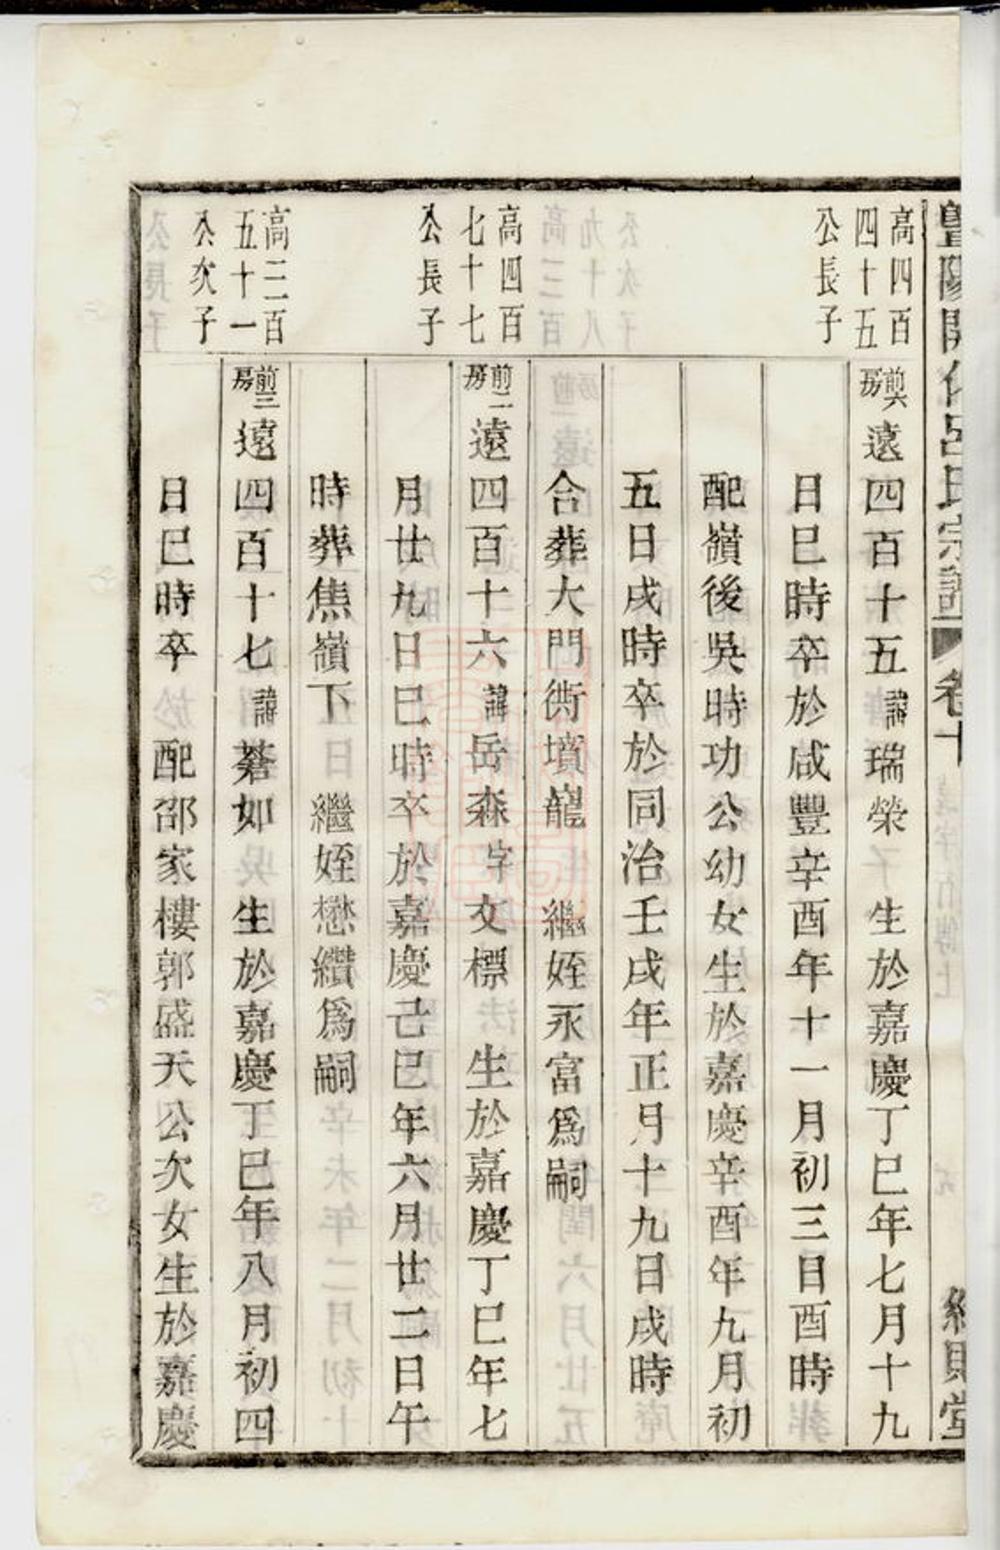 暨陽開化呂氏宗譜 卷十
高四百四十五公長子
前六房遠四百十五諱瑞榮 生於嘉慶丁巳年七月十九
日巳時卒於咸豐辛酉年十一月初三日酉時
配嶺後吳時功公幼女生於嘉慶辛酉年九月初
五日戌時卒於同治壬戌年正月十九日戌時
合葬大門衖墳龍 繼姪永富爲嗣
高四百七十七公長子
前二房遠四百十六諱岳森字文標 生於嘉慶丁巳年七
月廿九日巳時卒於嘉慶己巳年六月廿二日午
時葬焦嶺下 繼姪懋纘爲嗣
高三百五十一公次子
前三房遠四百十七諱如 生於嘉慶丁巳年八月初四
日巳時卒 配邵家樓郭盛天公次女生於嘉慶